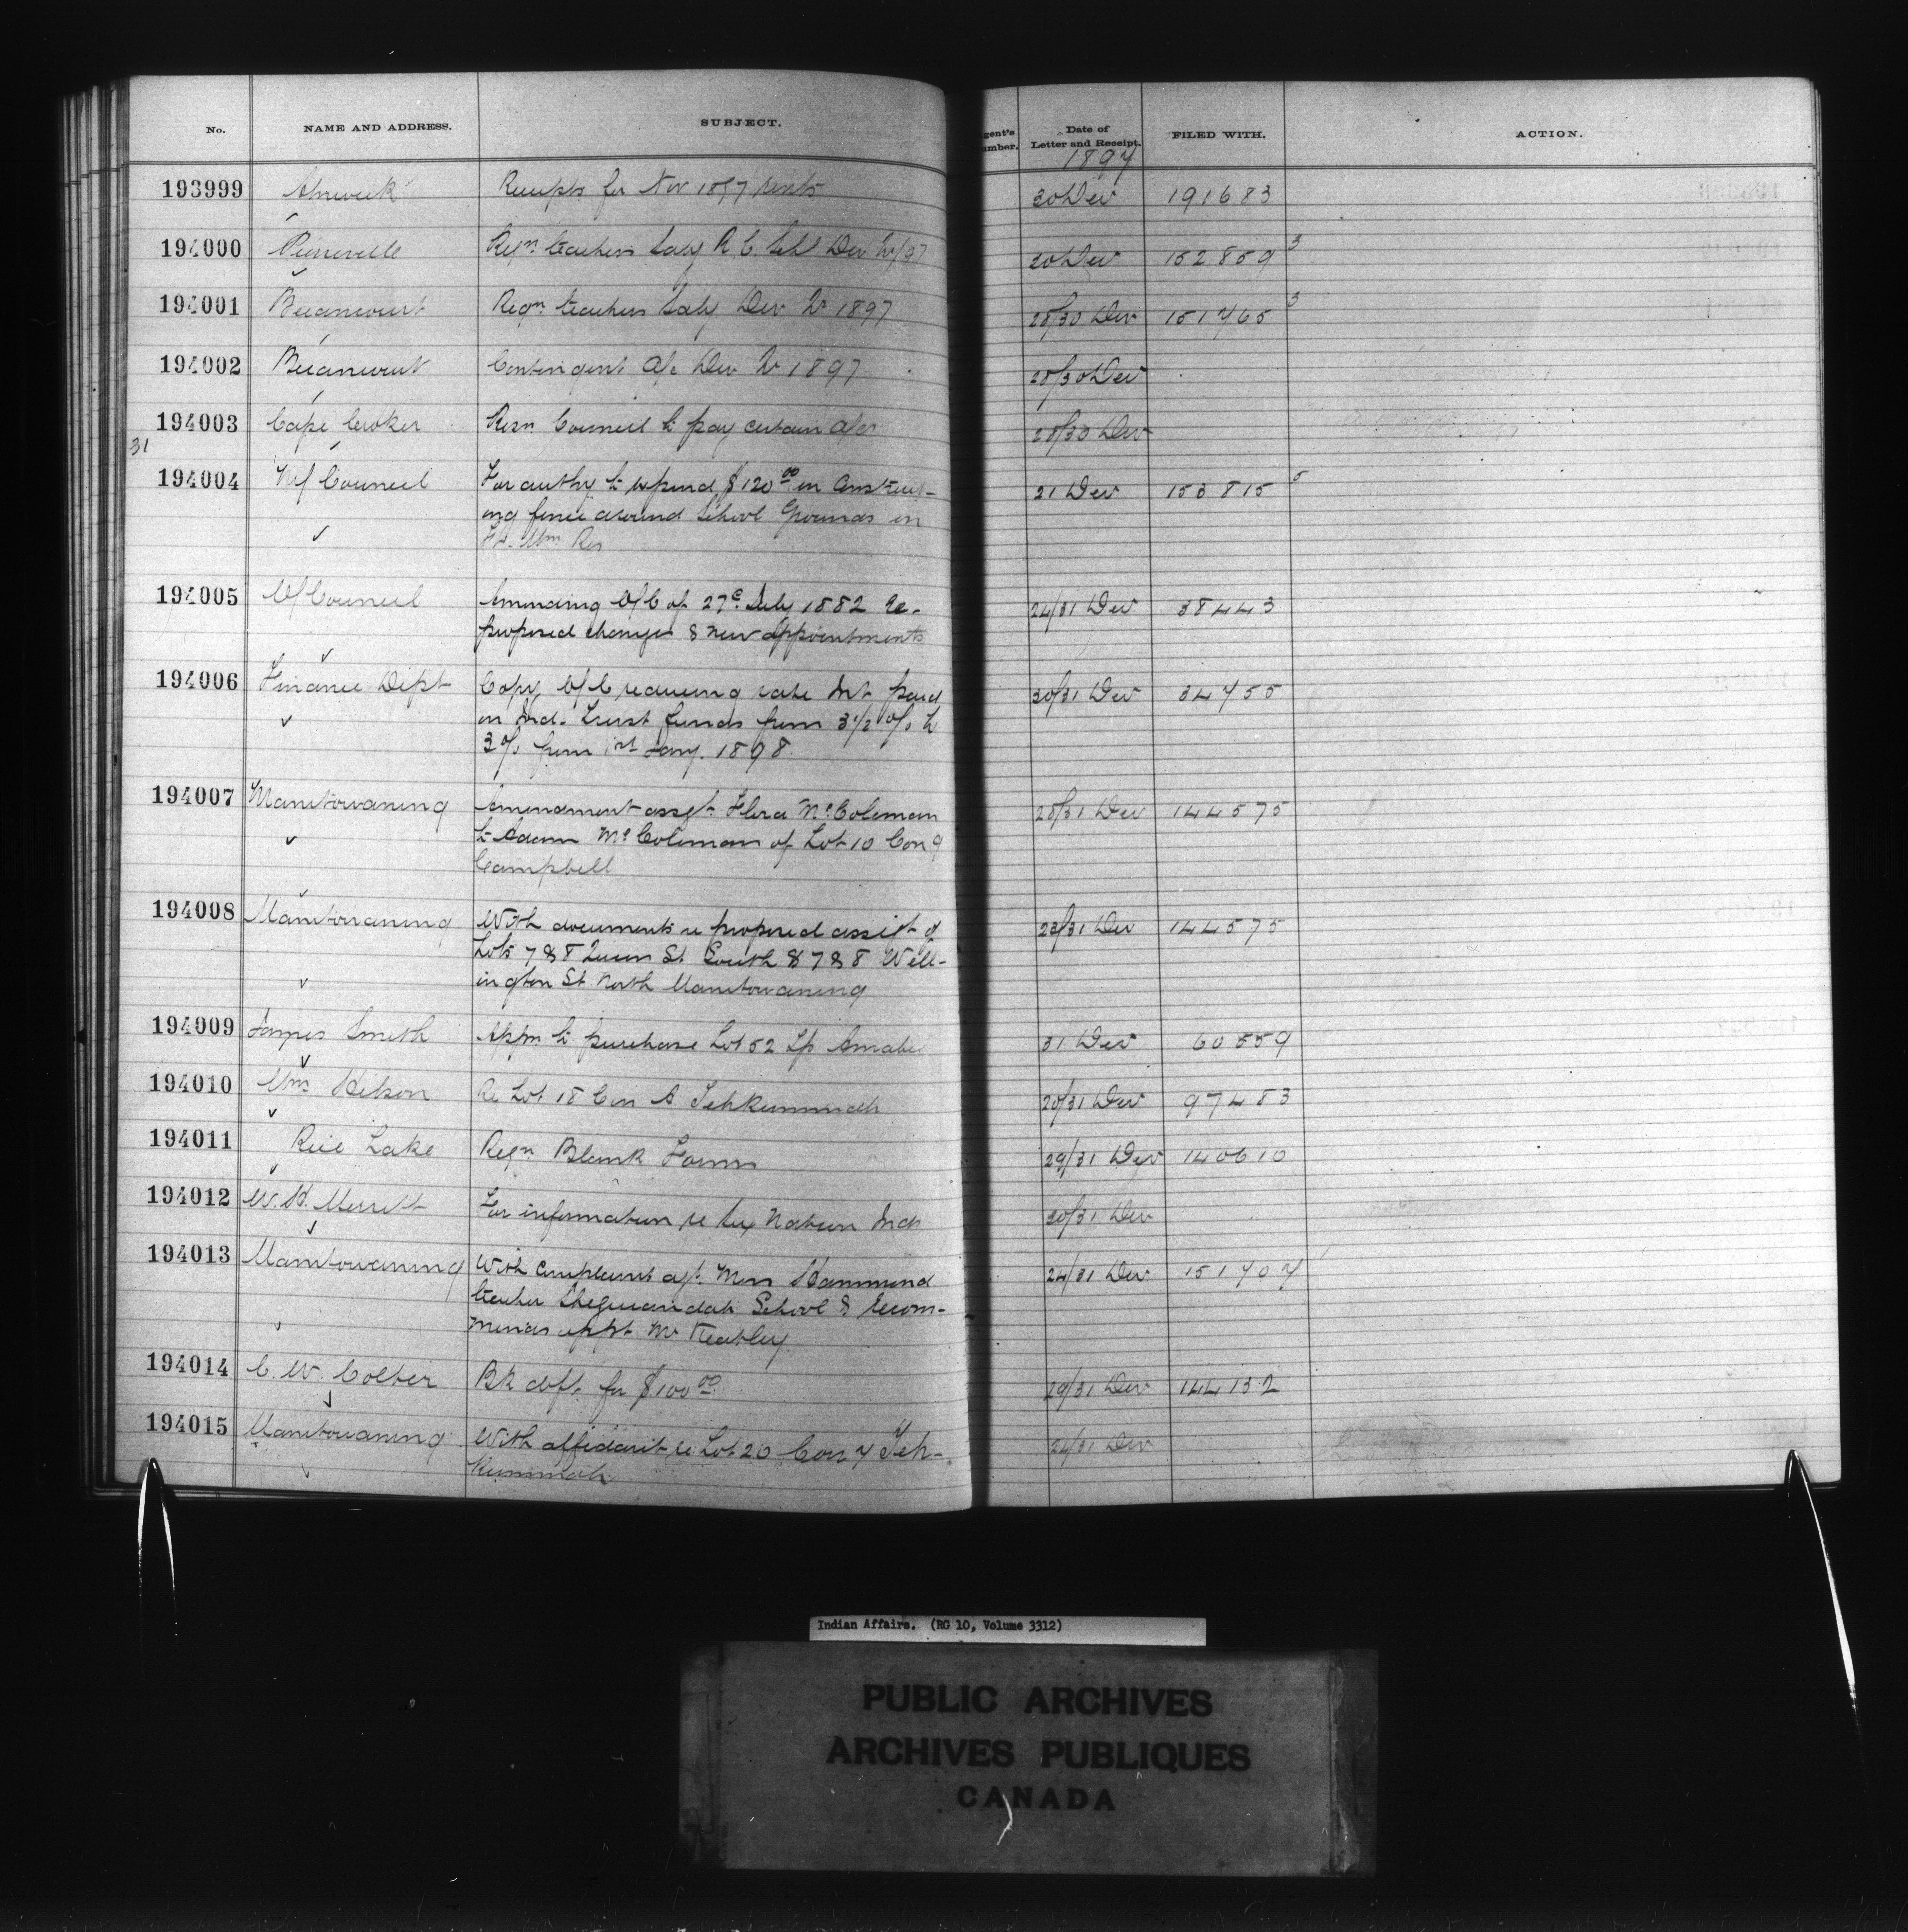 No. NAME AND ADDRESS. SUBJECT. gent's umber. Date of Letter and Receipt. FILED WITH. ACTION.
1897
193999 Alnwick Receipts for Nov 1897 rents 30 Dec 191683
194000 Pierreville Reqn teachers Saly R C. Schl Dec Qr/97 30 Dec 152859 3
194001 Becancourt Reqn. teachers Saly Dec Qr 1897 28/30 Dec 151765 3
194002 Becancourt Contingent a/c Dec Qr 1897 28/30 Dec
194003 Cape Croker Resn. Council to pay certain a/cs 28/30 Dec
31
194004 Council For authy to expend $120.00 in Construct- 21 Dec 153815 5
ing fence around School Grounds on
Ft. Wm. Res
194005 O/Council Amending O/C of 27th July 1882 Re- 24/31 Dec 38443
proposed changes & new appointments
194006 Finance Dept Copy O/C reducing rate Int paid 30/31 Dec 34755
on Ind. Trust funds from 3 1/2 o/o to
3 o/o from 1st Jany. 1898
194007 Manitowaning Amendment assgt. Flora McColeman 28/31 Dec 144575
to Adam McColeman of Lot 10 Con 9
Campbell
194008 Manitowaning With documents re proposed assigt of 23/31 Dec 144575
Lots 7 & 8 Queen St South & 7 & 8 Well-
ington St. North Manitowaning
194009 James Smith Appn. to purchase Lot 52 Tp Amabel 31 Dec 60559
194010 Wm. Re Lot 18 Con A Tehkummah 20/31 Dec 97483
194011 Rice Lake Reqn. Blank Forms 29/31 Dec 140610
194012 W. H. Merritt For information re Six Nation Inds 30/31 Dec
194013 Manitowaning With complaint agt. Miss Hammond 24/31 Dec 151707
teacher Sheguiandah School & recom-
mends appt. Mr Keatley.
194014 C. W. Colter Bk dft. for $100.00 29/31 Dec 144132
194015 Manitowaning With affidavit re Lot 20 Con 7 Teh- 24/31 Dec
kummah
Indian Affairs. (RG 10, Volume 3312)
PUBLIC ARCHIVES
ARCHIVES PUBLIQUES
CANADA